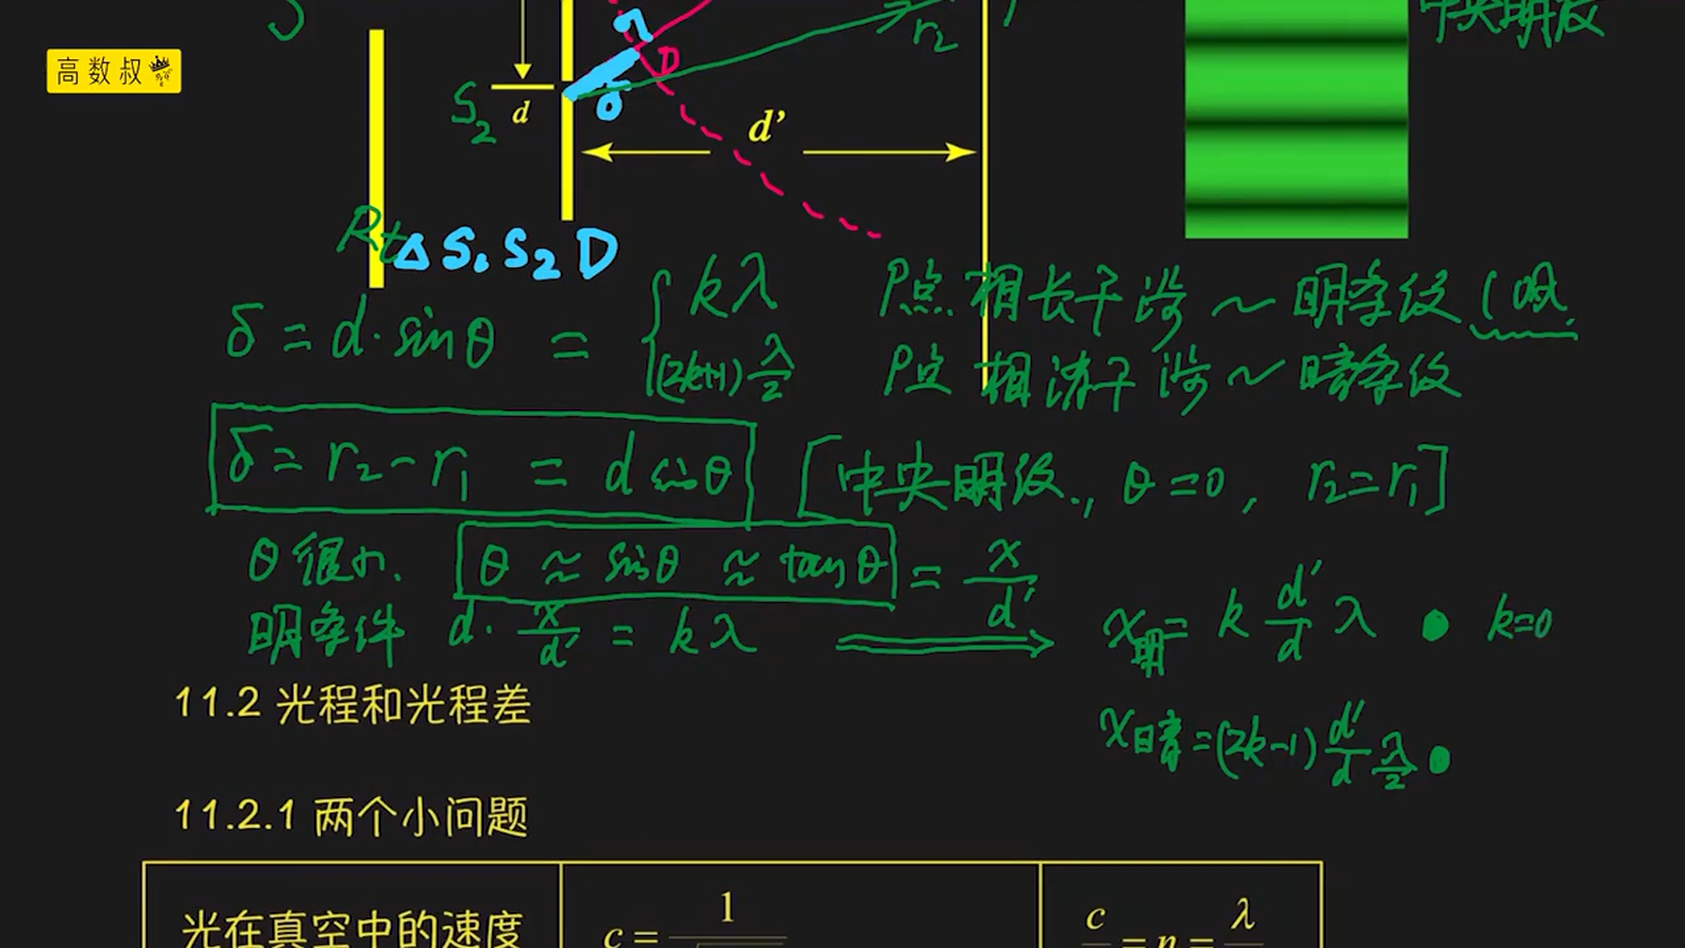 中央明纹
r₂
高数叔
D
S₂
d
δ
d’
Rt△S₁S₂D
δ = d·sinθ = { kλ P点 相长干涉 ~ 明条纹
(2k+1)λ/2 P点 相消干涉 ~ 暗条纹
δ = r₂ - r₁ = d sinθ [中央明纹, θ=0, r₂=r₁]
θ很小, θ ≈ sinθ ≈ tanθ = x/d'
明条件 d·x/d' = kλ ⟹ x明 = k d'/d λ • k=0
x暗 = (2k-1) d'/d λ/2 •
11.2 光程和光程差
11.2.1 两个小问题
光在真空中的速度
c = 1
c = n = λ